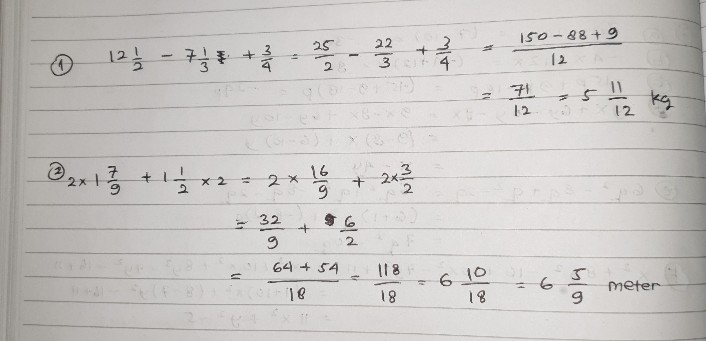 ① 12 1/2 - 7 1/3 + 3/4 = 25/2 - 22/3 + 3/4 = (150 - 88 + 9)/12
= 71/12 = 5 11/12 kg
② 2 × 1 7/9 + 1 1/2 × 2 = 2 × 16/9 + 2 × 3/2
= 32/9 + 6/2
= (64 + 54)/18 = 118/18 = 6 10/18 = 6 5/9 meter